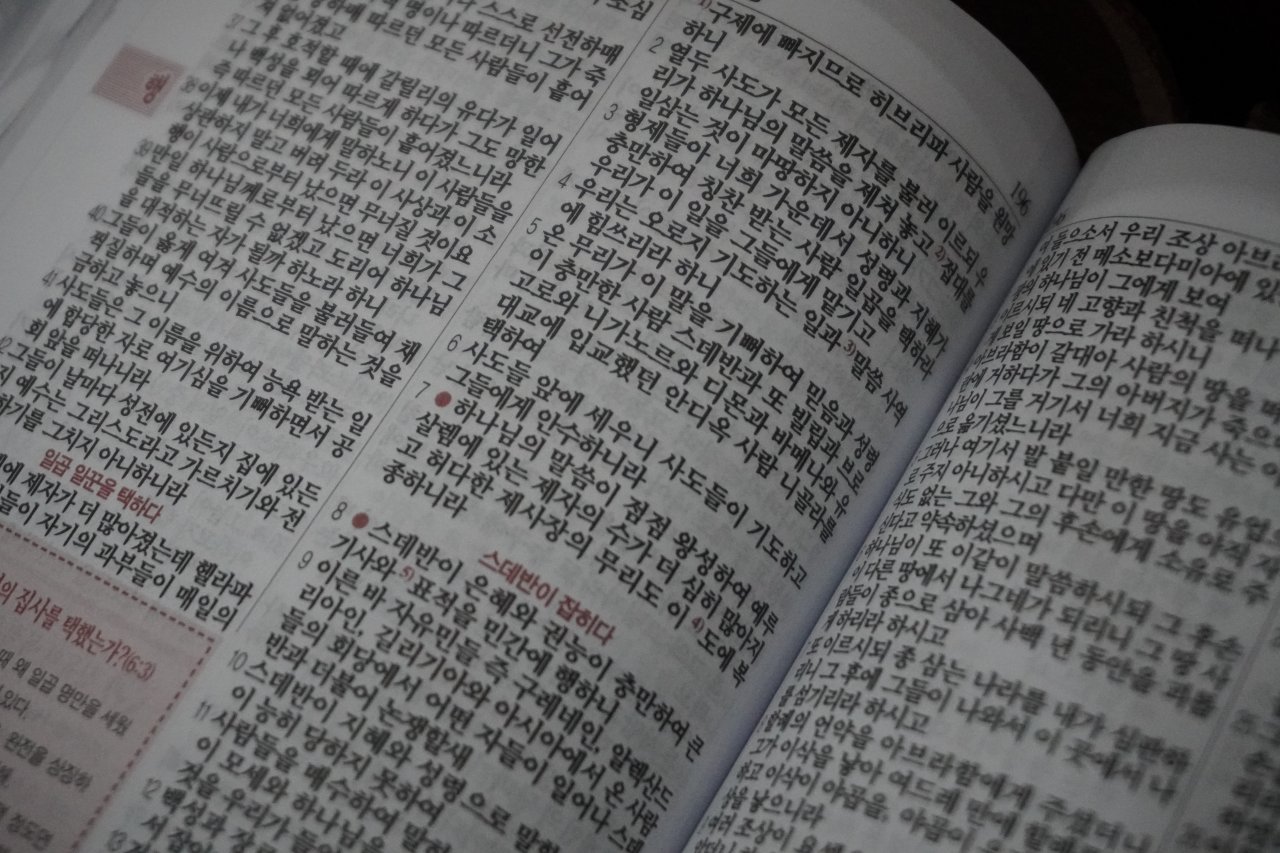 스스로 선전하매
명이나 따르더니 그가 죽
으매 따르던 모든 사람들이 흩어
져 없어졌고
37 그 후 호적할 때에 갈릴리의 유다가 일어
나 백성을 꾀어 따르게 하다가 그도 망한
즉 따르던 모든 사람들이 흩어졌느니라
38 이제 내가 너희에게 말하노니 이 사람들을
상관하지 말고 버려 두라 이 사상과 이 소
행이 사람으로부터 났으면 무너질 것이요
39 만일 하나님께로부터 났으면 너희가 그
들을 무너뜨릴 수 없겠고 도리어 하나님
을 대적하는 자가 될까 하노라 하니
40 그들이 옳게 여겨 사도들을 불러들여 채
찍질하며 예수의 이름으로 말하는 것을
금하고 놓으니
41 사도들은 그 이름을 위하여 능욕 받는 일
에 합당한 자로 여기심을 기뻐하면서 공
회 앞을 떠나니라
그들이 날마다 성전에 있든지 집에 있든
지 예수는 그리스도라고 가르치기와 전
하기를 그치지 아니하니라
일곱 일꾼을 택하다
제자가 더 많아졌는데 헬라파
자기의 과부들이 매일의
집사를 택했는가?(6:3)
때 왜 일곱 명만을 세웠
있다.
완전을 상징하
정도면
행
1) 구제에 빠지므로 히브리파 사람을 원망
하니
2 열두 사도가 모든 제자를 불러 이르되 우
리가 하나님의 말씀을 제쳐 놓고 2) 접대를
일삼는 것이 마땅하지 아니하니
3 형제들아 너희 가운데서 성령과 지혜가
충만하여 칭찬 받는 사람 일곱을 택하라
우리가 이 일을 그들에게 맡기고
4 우리는 오로지 기도하는 일과 3) 말씀 사역
에 힘쓰리라 하니
5 온 무리가 이 말을 기뻐하여 믿음과 성령
이 충만한 사람 스데반과 또 빌립과 브로
고로와 니가노르와 디몬과 바메나와 유
대교에 입교했던 안디옥 사람 니골라를
택하여
6 사도들 앞에 세우니 사도들이 기도하고
그들에게 안수하니라
7 ● 하나님의 말씀이 점점 왕성하여 예루
살렘에 있는 제자의 수가 더 심히 많아지
고 허다한 제사장의 무리도 이 4) 도에 복
종하니라
스데반이 잡히다
8 ● 스데반이 은혜와 권능이 충만하여 큰
기사와 5) 표적을 민간에 행하니
9 이른 바 자유민들 즉 구레네인, 알렉산드
리아인, 길리기아와 아시아에서 온 사람
들의 회당에서 어떤 자들이 일어나 스데
반과 더불어 논쟁할새
10 스데반이 지혜와 성령으로 말함
이 능히 당하지 못하여
11 사람들을 매수하여 말하
이 모세와 하나님을
것을 우리가
12 백성과
서
13
196
들으소서 우리 조상 아브라
있기 전 메소보다미아에 있
하나님이 그에게 보여
이르시되 네 고향과 친척을 떠나
보일 땅으로 가라 하시니
아브라함이 갈대아 사람의 땅을 떠
란에 거하다가 그의 아버지가 죽으
하나님이 그를 거기서 너희 지금 사는
으로 옮기셨느니라
그러나 여기서 발 붙일 만한 땅도 유업으
로 주지 아니하시고 다만 이 땅을 아직 자
식도 없는 그와 그의 후손에게 소유로 주
신다고 약속하셨으며
하나님이 또 이같이 말씀하시되 그 후손
이 다른 땅에서 나그네가 되리니 그 땅 사
람들이 종으로 삼아 사백 년 동안을 괴롭
게 하리라 하시고
또 이르시되 종 삼는 나라를 내가 심판하
리니 그 후에 그들이 나와서 이 곳에서 나
를 섬기리라 하시고
할례의 언약을 아브라함에게 주셨더니
그가 이삭을 낳아 여드레 만에 할례를
하고 이삭이 야곱을, 야곱이
상을 낳으니라
여러 조상이